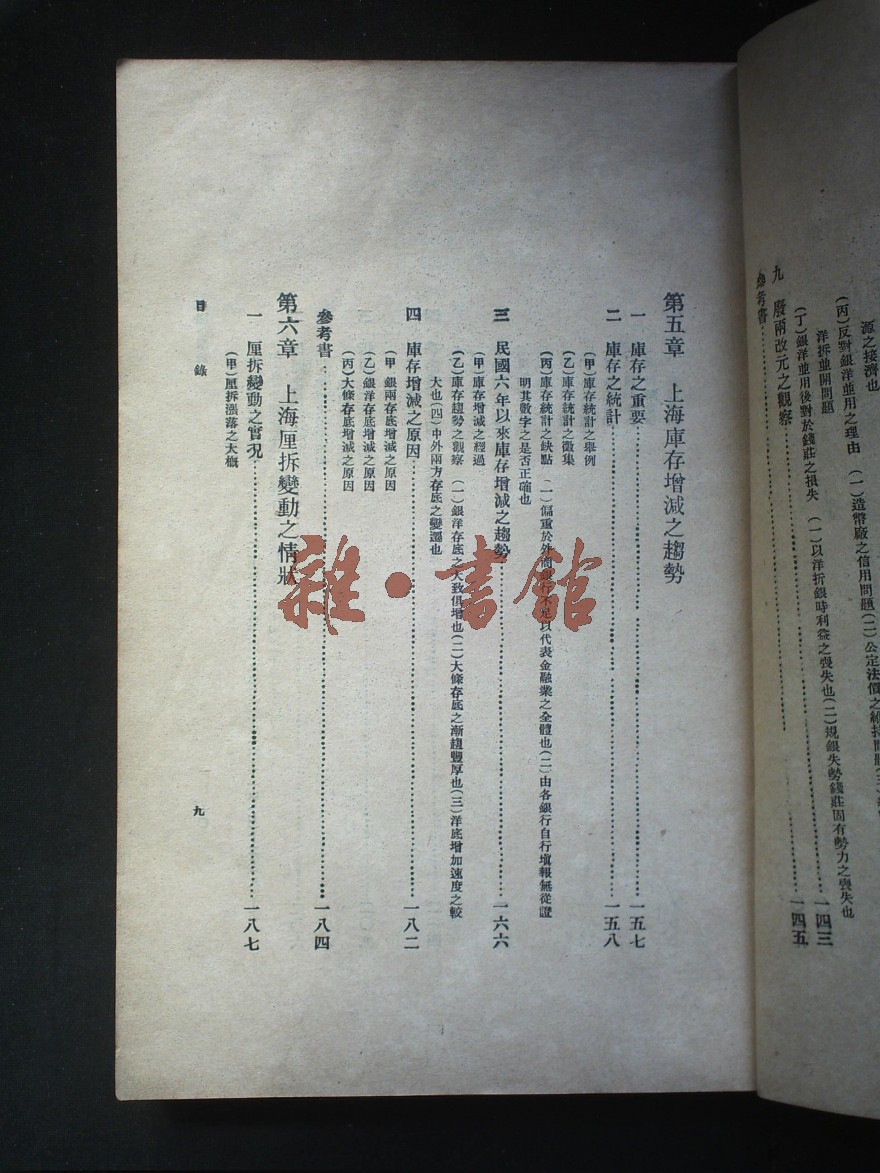 源之接濟也
(丙)反對銀洋並用之理由 (一)造幣廠之信用問題(二)公定法價之維持問題(三)
洋拆並開問題……一四三
(丁)銀洋並用後對於錢莊之損失 (一)以洋折銀時利益之喪失也(二)規銀失勢錢莊固有勢力之喪失也
九 廢兩改元之觀察……一四五
參考書
第五章 上海庫存增減之趨勢
一 庫存之重要……一五七
二 庫存之統計……一五八
(甲)庫存統計之舉例
(乙)庫存統計之徵集
(丙)庫存統計之缺點 (一)偏重於外商銀行不足以代表金融業之全體也(二)由各銀行自行填報無從證
明其數字之是否正確也
三 民國六年以來庫存增減之趨勢……一六六
(甲)庫存增減之經過
(乙)庫存趨勢之觀察 (一)銀洋存底之大致俱增也(二)大條存底之漸趨豐厚也(三)洋底增加速度之較
大也(四)中外兩方存底之變遷也
四 庫存增減之原因……一八二
(甲)銀兩存底增減之原因
(乙)銀洋存底增減之原因
(丙)大條存底增減之原因
參考書……一八四
第六章 上海厘拆變動之情狀
一 厘拆變動之實况……一八七
(甲)厘拆漲落之大概
目錄
九
雜·書館